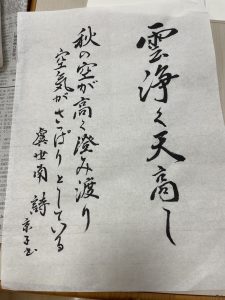 雲浄く天高し
秋の空が高く澄み渡り
空気がさっぱりとしている
虞世南 詩 京子書